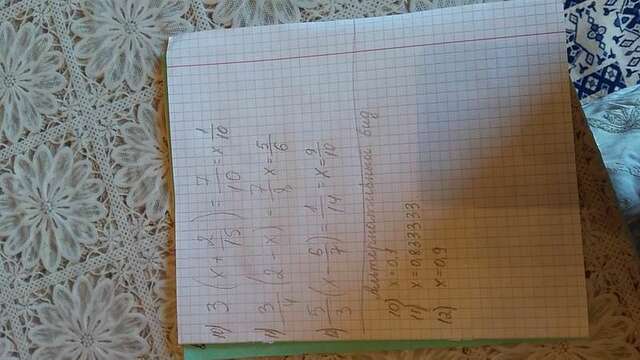 10) 3 (x + 2/15) = 7/10 = x 1/10
11) 3/4 (2 - x) = 7/8 x = 5/6
12) 5/3 (x - 6/7) = 1/14 = x = 9/10
Альтернативный вид
10) x = 0,1
11) x = 0,833333
12) x = 0,9